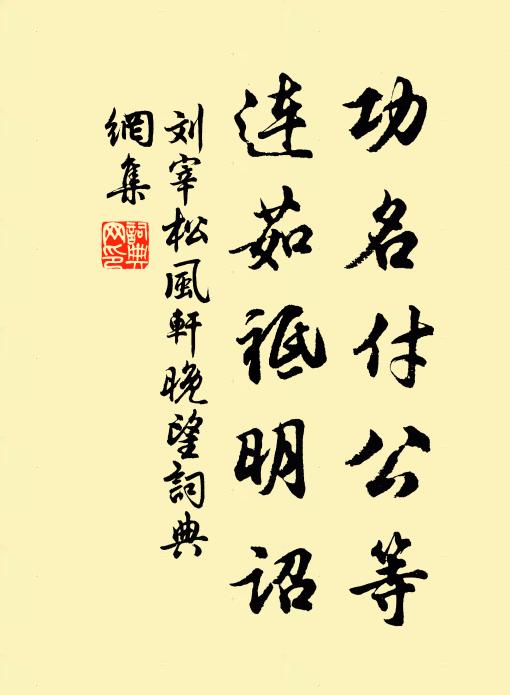 功名付公等
连茹祗明诏
刘宰松風軒晚望詞典
網集
詞典網印